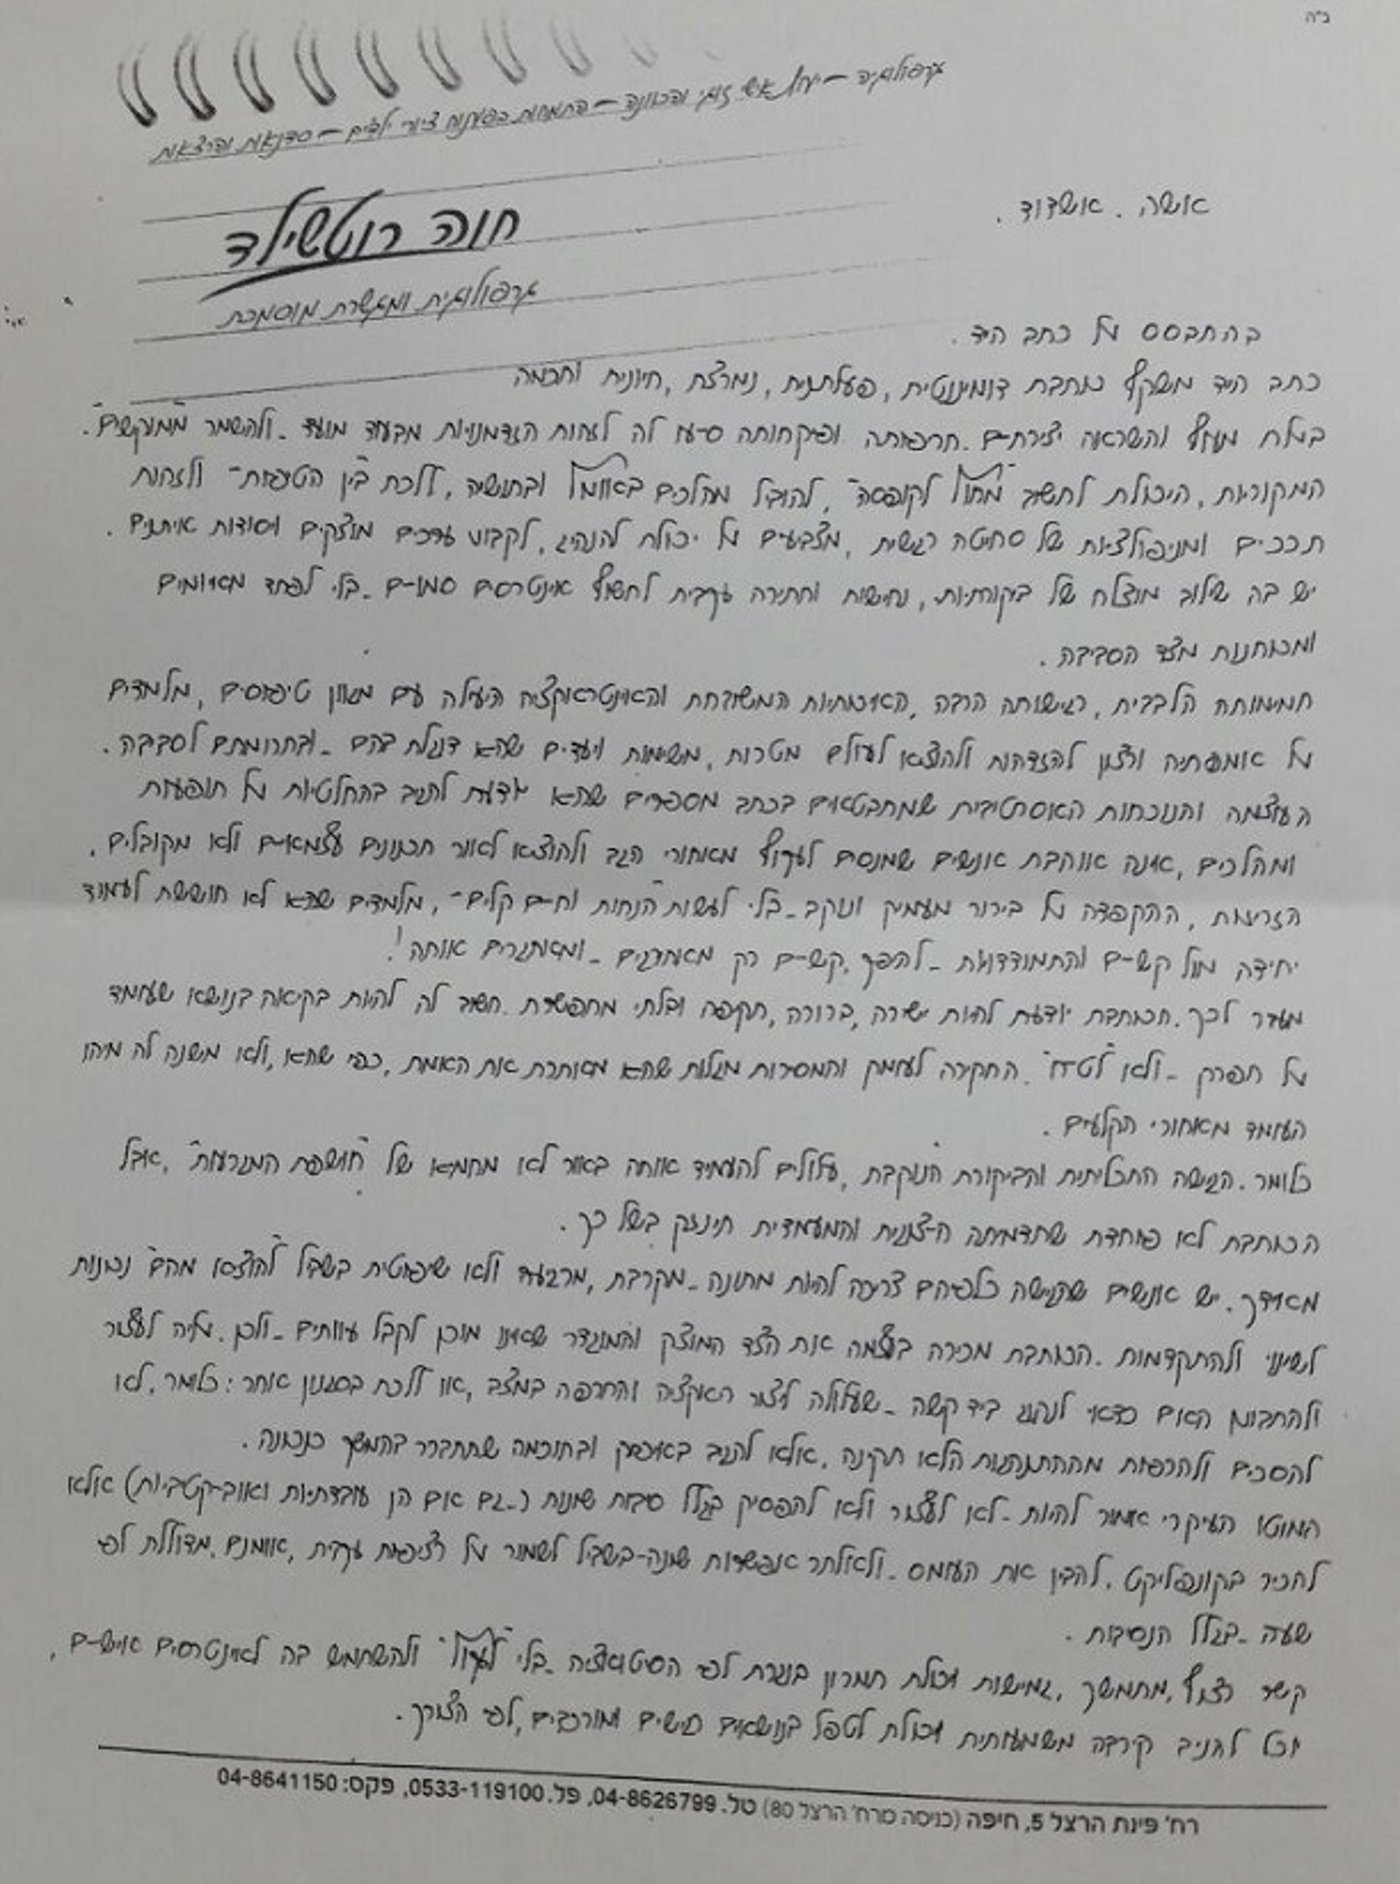 ב"ה
גרפולוגיה – יעוץ אישי זוגי והכוונה – התמחות בפענוח ציורי ילדים – סדנאות והרצאות
חוה רוטשילד
גרפולוגית ומגשרת מוסמכת
אשה. אשדוד.
בהתבסס על כתב היד.
כתב היד משקף כותבת דומיננטית, פעלתנית, נמרצת, חיונית וחכמה
בעלת מעוף והשראה יצירתיים. חריפותה ופיקחותה סייעו לה לזהות הזדמנויות מבעוד מועד - ולהשמר "ממוקשים".
המקוריות, היכולת לחשוב "מחוץ לקופסה", להוביל מהלכים באומץ ובתושיה, ללכת "בין הטיפות" ולזהות
תככים ומניפולציות של סחיטה רגשית, מצביעים על יכולת להנהיג, לקבוע ערכים מוצקים ויסודות איתנים.
יש בה שילוב מוצלח של ביקורתיות, נחישות וחתירה עקבית לחשוף אינטרסים סמויים - בלי לפחד מאיומים
ומכוחנות מצד הסביבה.
חמימותה הלבבית, רגישותה הרבה, האיכותיות המשובחת והאינטראקציה היעילה עם מגוון טיפוסים, מלמדים
על אמפתיה ורצון להזדהות ולהוציא לפועל מטרות, משימות ויעדים שהיא דוגלת בהם - ובתרומתם לסביבה.
העוצמה והנוכחות האסרטיבית שמתבטאים בכתב מספרים שהיא יודעת להגיב בהחלטיות על תופעות
ומהלכים, אינה אוהבת אנשים שמנסים לעקוף מאחורי הגב ולהוציא לאור תכנונים עצמאיים ולא מקובלים.
הזריזות, ההקפדה על בירור מעמיק ונוקב - בלי לעשות "הנחות וחיים קלים", מלמדים שהיא לא חוששת לעמוד
יחידה מול קשיים והתמודדויות - להפך, קשיים רק מאתגרים - ומאתגרים אותה!
מעבר לכך. הכותבת יודעת להיות ישירה, ברורה, תקיפה ובלתי מתפשרת. חשוב לה להיות בקיאה בנושא שעומד
על הפרק - ולא "לטייח". החקירה לעומק והמסירות מגלות שהיא מאתרת את האמת, כפי שהיא, ולא משנה לה מיהו
העומד מאחורי הקלעים.
כלומר. הגישה התכליתית והביקורת הנוקבת, עלולים להעמיד אותה באור לא מחמיא של "חושפת המגרעות", אבל
הכותבת לא פוחדת שתדמיתה הייצוגית והמעמדית תינזק בשל כך.
מאידך. יש אנשים שהגישה כלפיהם צריכה להיות מתונה - מקרבת, מרגיעה ולא שיפוטית בשביל "להוציא מהם" נכונות
לשינוי ולהתקדמות. הכותבת מכירה בעצמה את הצד המוצק והמוגדר שאינו מוכן לקבל עיוותים - ולכן. עליה לעצור
ולהתבונן האם כדאי לנהוג ביד קשה - שעלולה ליצור ריאקציה והחרפה במצב, או ללכת בסגנון אחר: כלומר. לא
להסכים ולהרפות מההתנהגות הלא תקינה, אלא להגיב באיפוק ובחוכמה שתתברר בהמשך כנכונה.
המוטו העיקרי אמור להיות - לא לעצור ולא להפסיק בגלל סיבות שונות (- גם אם הן עובדתיות ואובייקטביות) אלא
להכיר בקונפליקט, להבין את העומס - ולאלתר אפשרות שונה - בשביל לשמור על רציפות עקבית, אומנם. מדוללת לפי
שעה - בגלל הנסיבות.
קשר רצוף, מתמשך, גמישות ויכולת תמרון בוגרת לפי הסיטואציה - בלי "לקפל" ולהשתמש בה לאינטרסים אישיים,
יוכל להניב קירבה משמעותית ויכולת לטפל בנושאים רגישים ומורכבים, לפי הצורך.
רח' פינת הרצל 5, חיפה (כניסה מרח' הרצל 80) טל. 04-8626799, פל. 0533-119100, פקס: 04-8641150